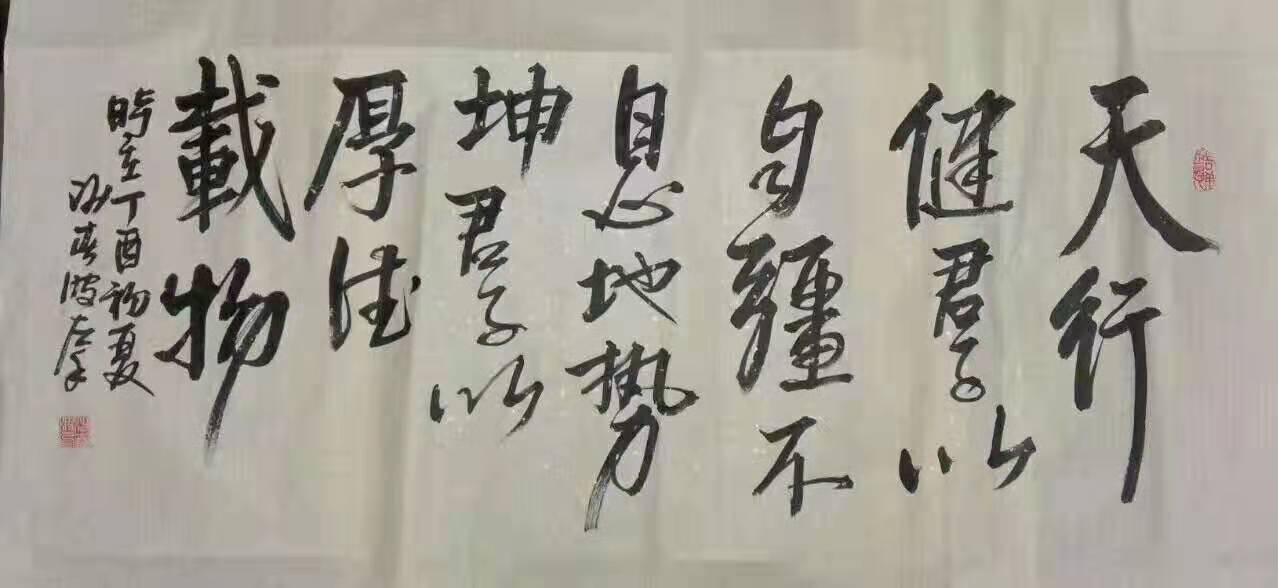 天行
健君子以
自疆不
息地势
坤君子以
厚德
載物
時在丁酉初夏
春波書